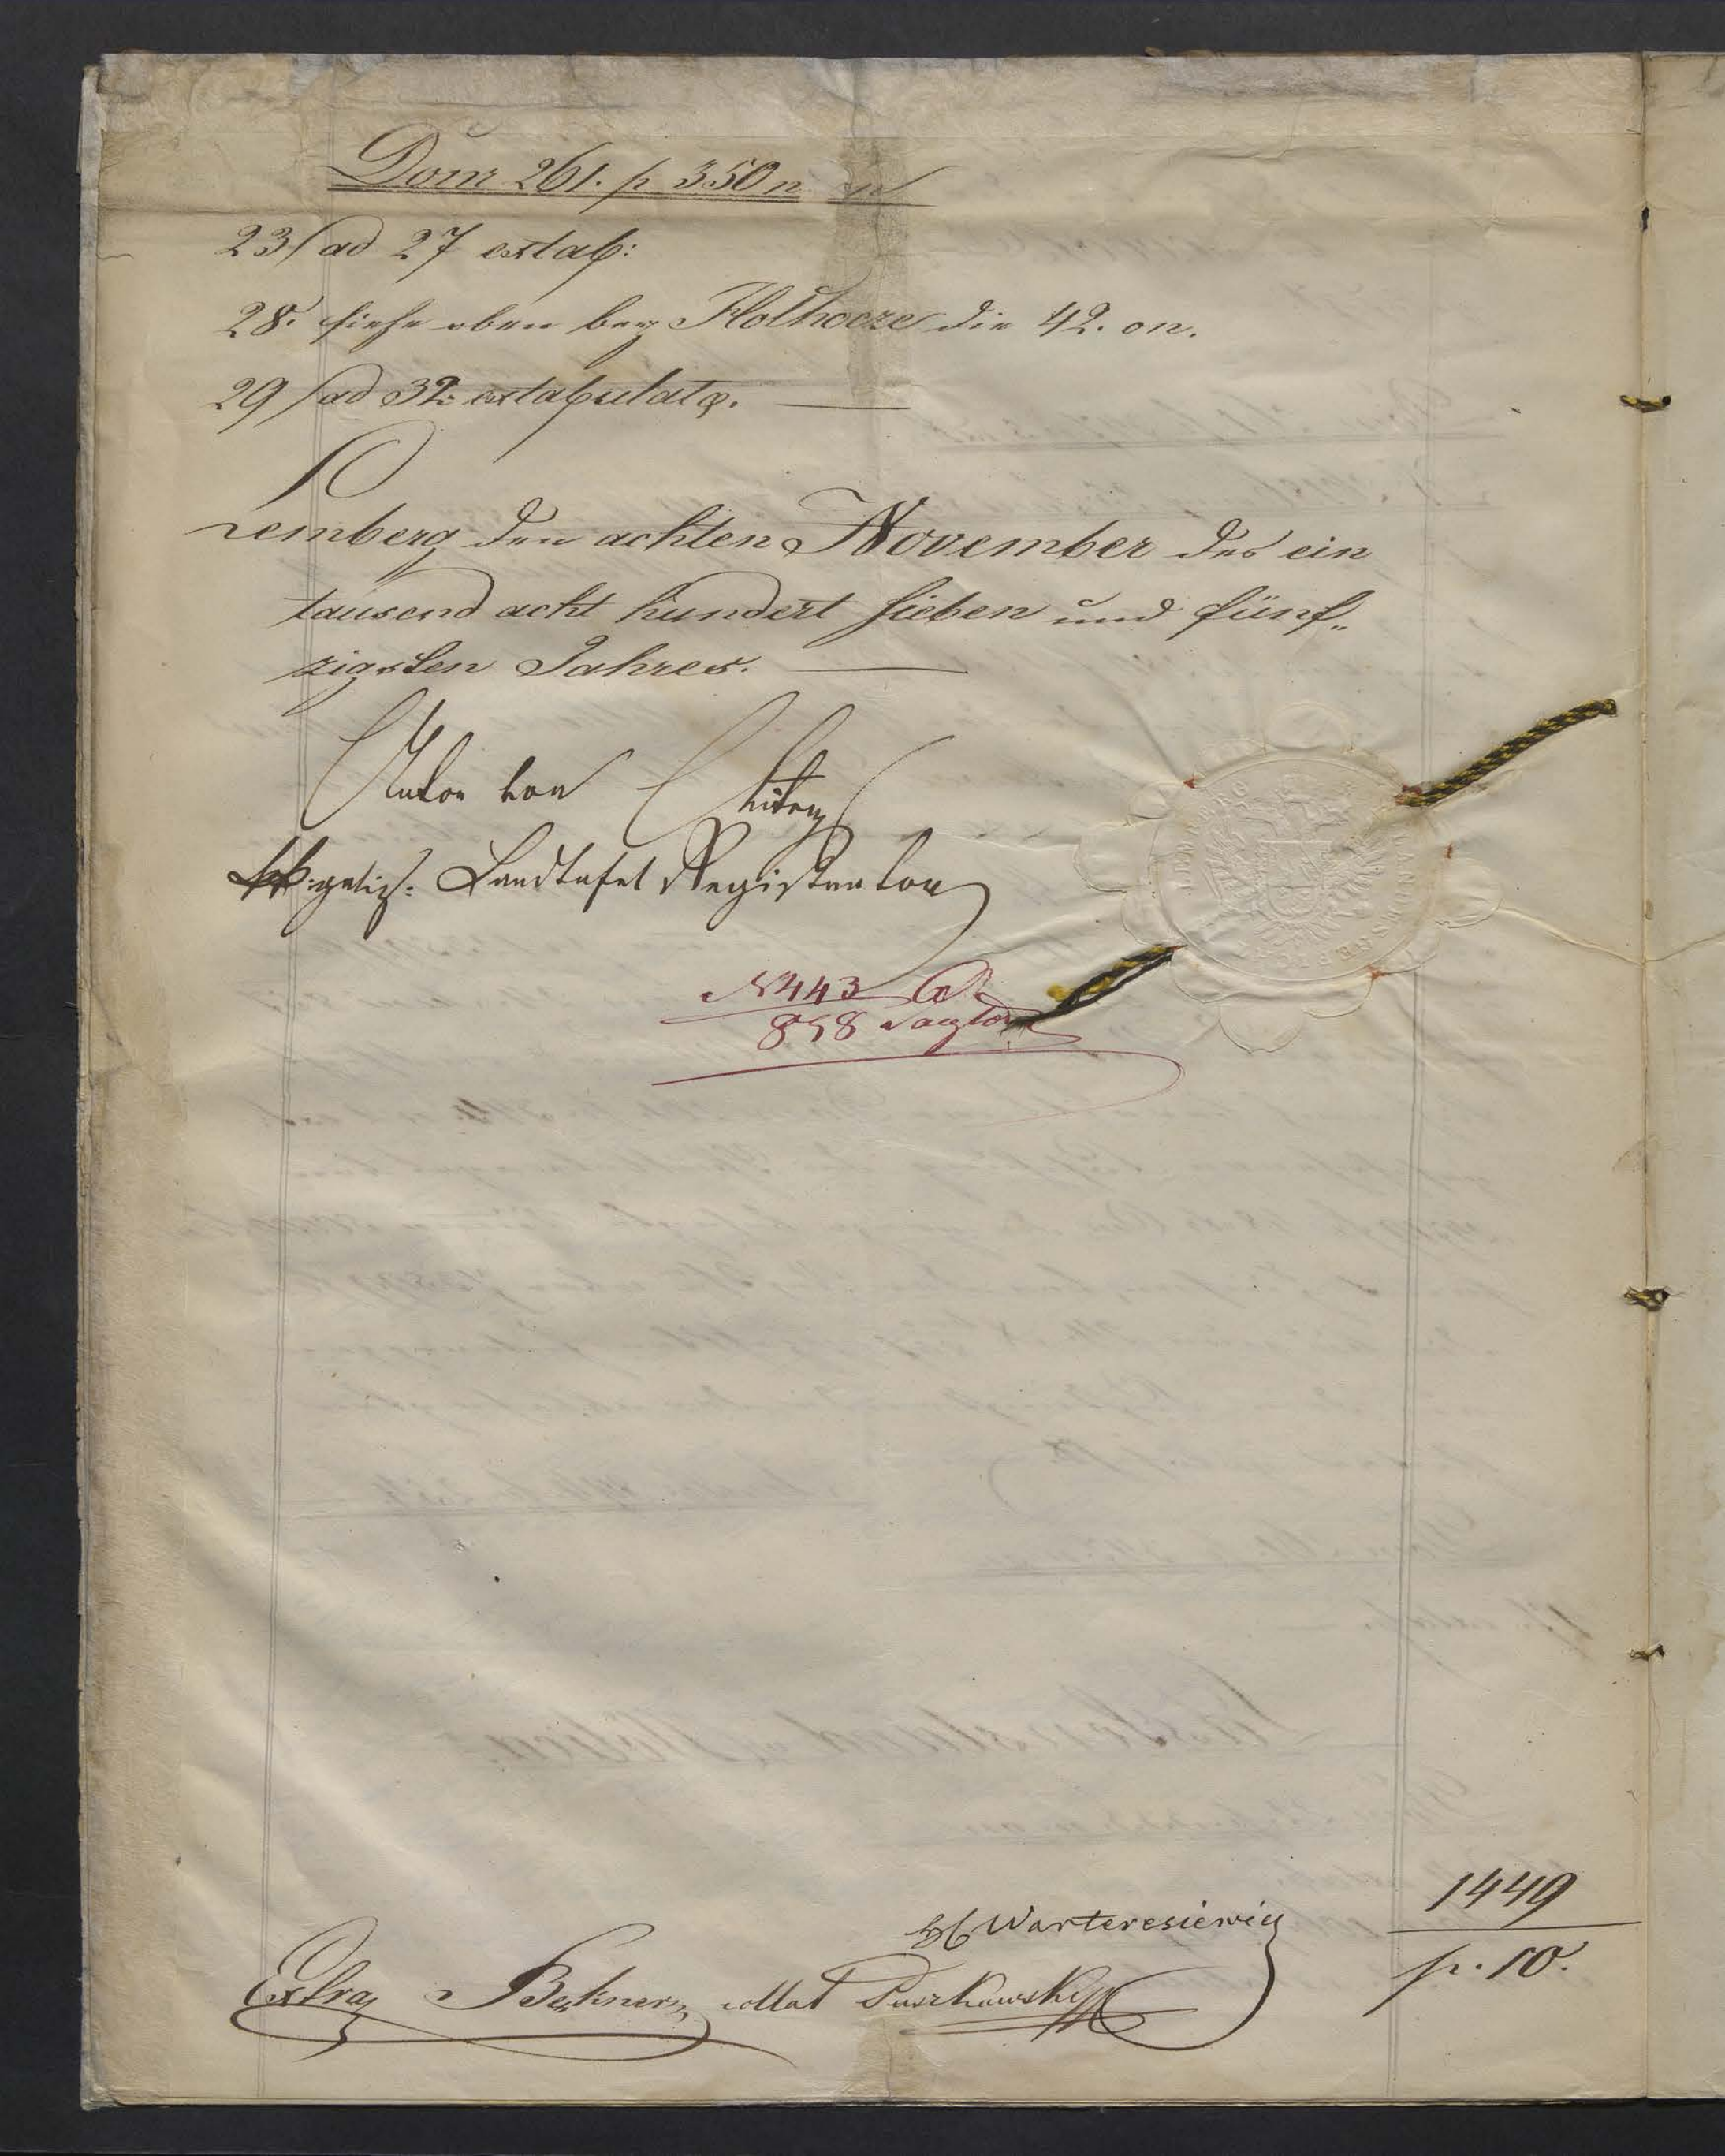 Dom 261. p 350 n on
23/ ad 27 extab:
28. siehe oben bey Holhocze die 42. on.
29/ ad 32: extabulata.
Lemberg den achten November des ein
tausend acht hundert sieben und fünf„
zigsten Jahres.
Anton von
kk: galiz: Landtafel Registrator
N 443
858
Warteresiewicz
Extra collat Puszkowski
1449
p. 10.